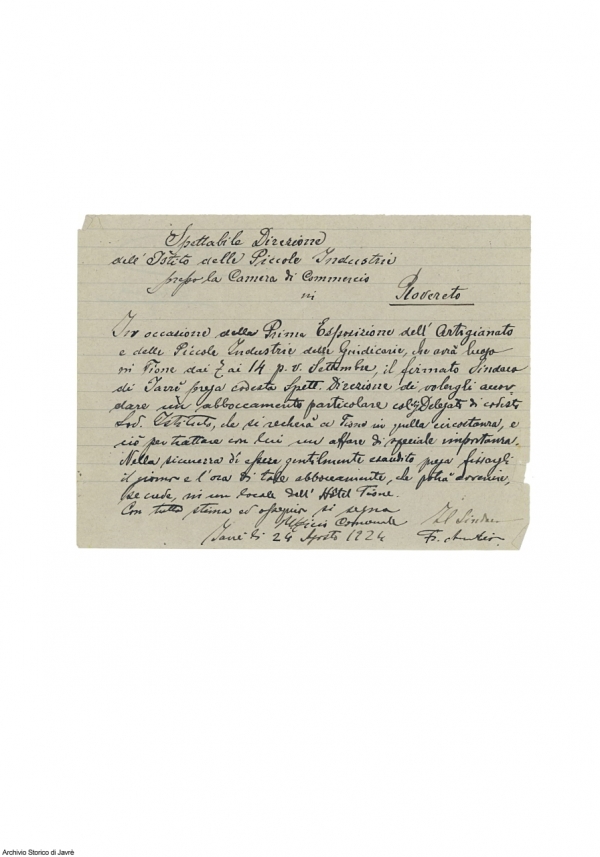 Spettabile Direzione
dell' Istituto delle Piccole Industrie
presso la Camera di Commercio
in Rovereto
In occasione della Prima Esposizione dell' Artigianato
e delle Piccole Industrie delle Giudicarie, che avrà luogo
in Tione dai 7 ai 14 p. v. Settembre, il firmato Sindaco
di Javrè prega codesta Spett. Direzione di volergli accor-
dare un abboccamento particolare col Delegato di codesto
Lod. Istituto, che si recherà a Tione in quella circostanza, e
ciò per trattare con lui un affare di speciale importanza.
Nella sicurezza di essere gentilmente esaudito, prega fissargli
il giorno e l'ora di tale abboccamento, che potrà avvenire,
se crede, in un locale dell' Hôtel Tione.
Con tutta stima ed ossequio si segna
Ufficio Comunale Il Sindaco
Javrè li 24 Agosto 1924
Archivio Storico di Javrè